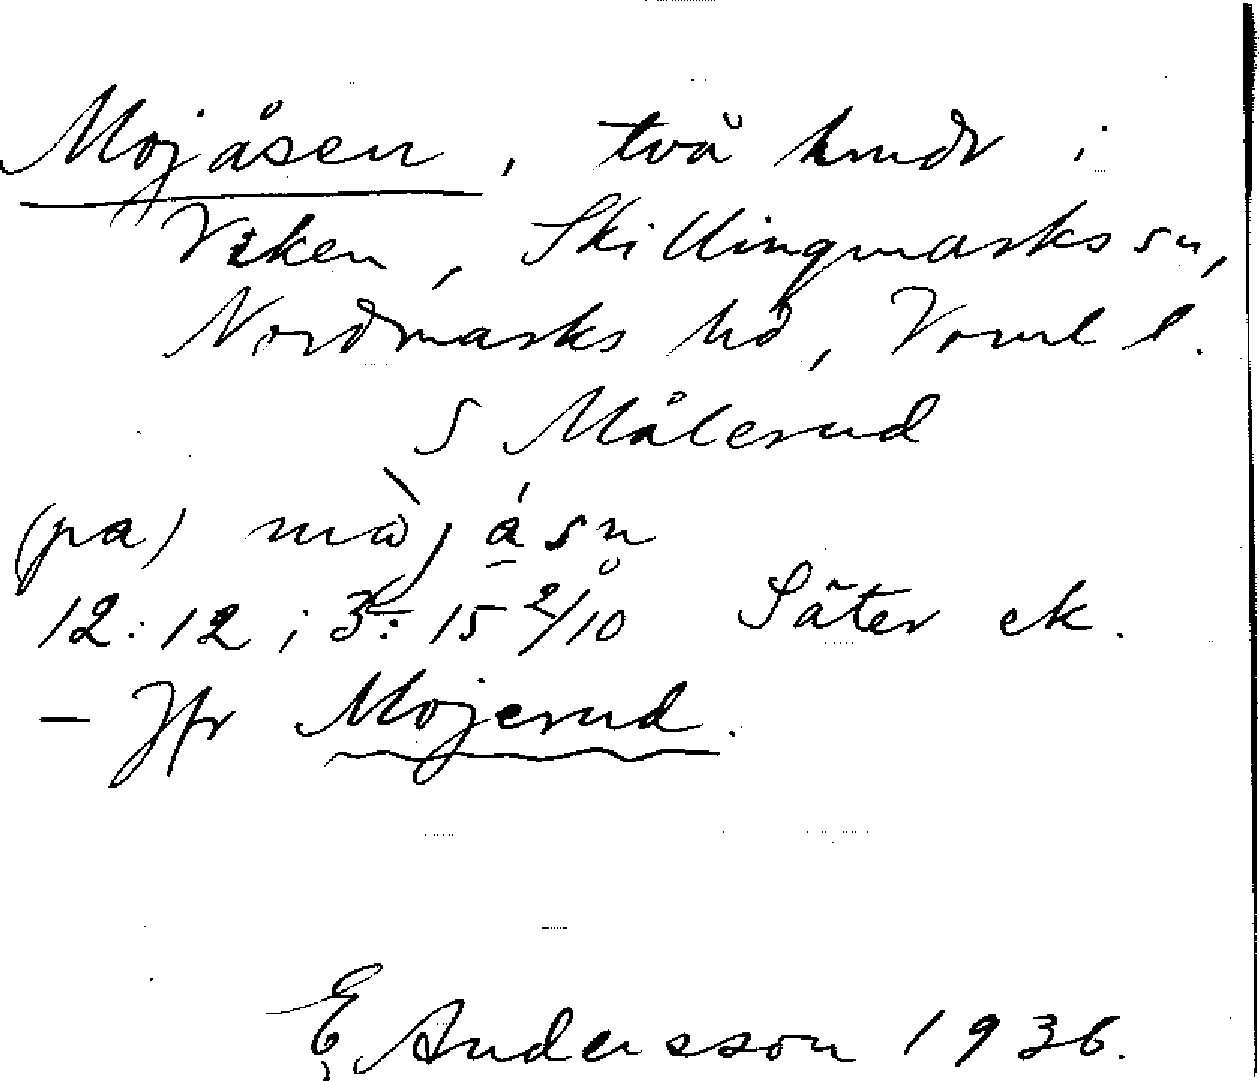 Mojåsen, två hmdr i
Viken, Skillingmarks sn,
Nordmarks hd, Värml l.
S Målerud
(pa) mòjásn
12:12; 3: 15 2/10 Säter ek.
– Jfr Mojerud.
E Andersson 1936.